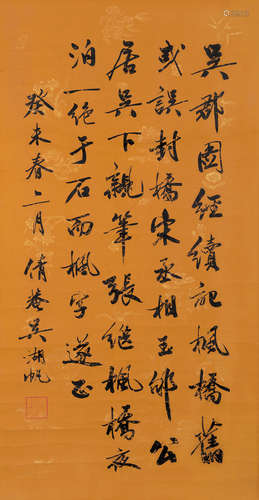 吳郡圖經續記楓橋舊
或誤封橋宋丞相王郇公
居吳下親筆張繼楓橋夜
泊一絕于石而楓字遂正
癸未春二月倩菴吳湖帆